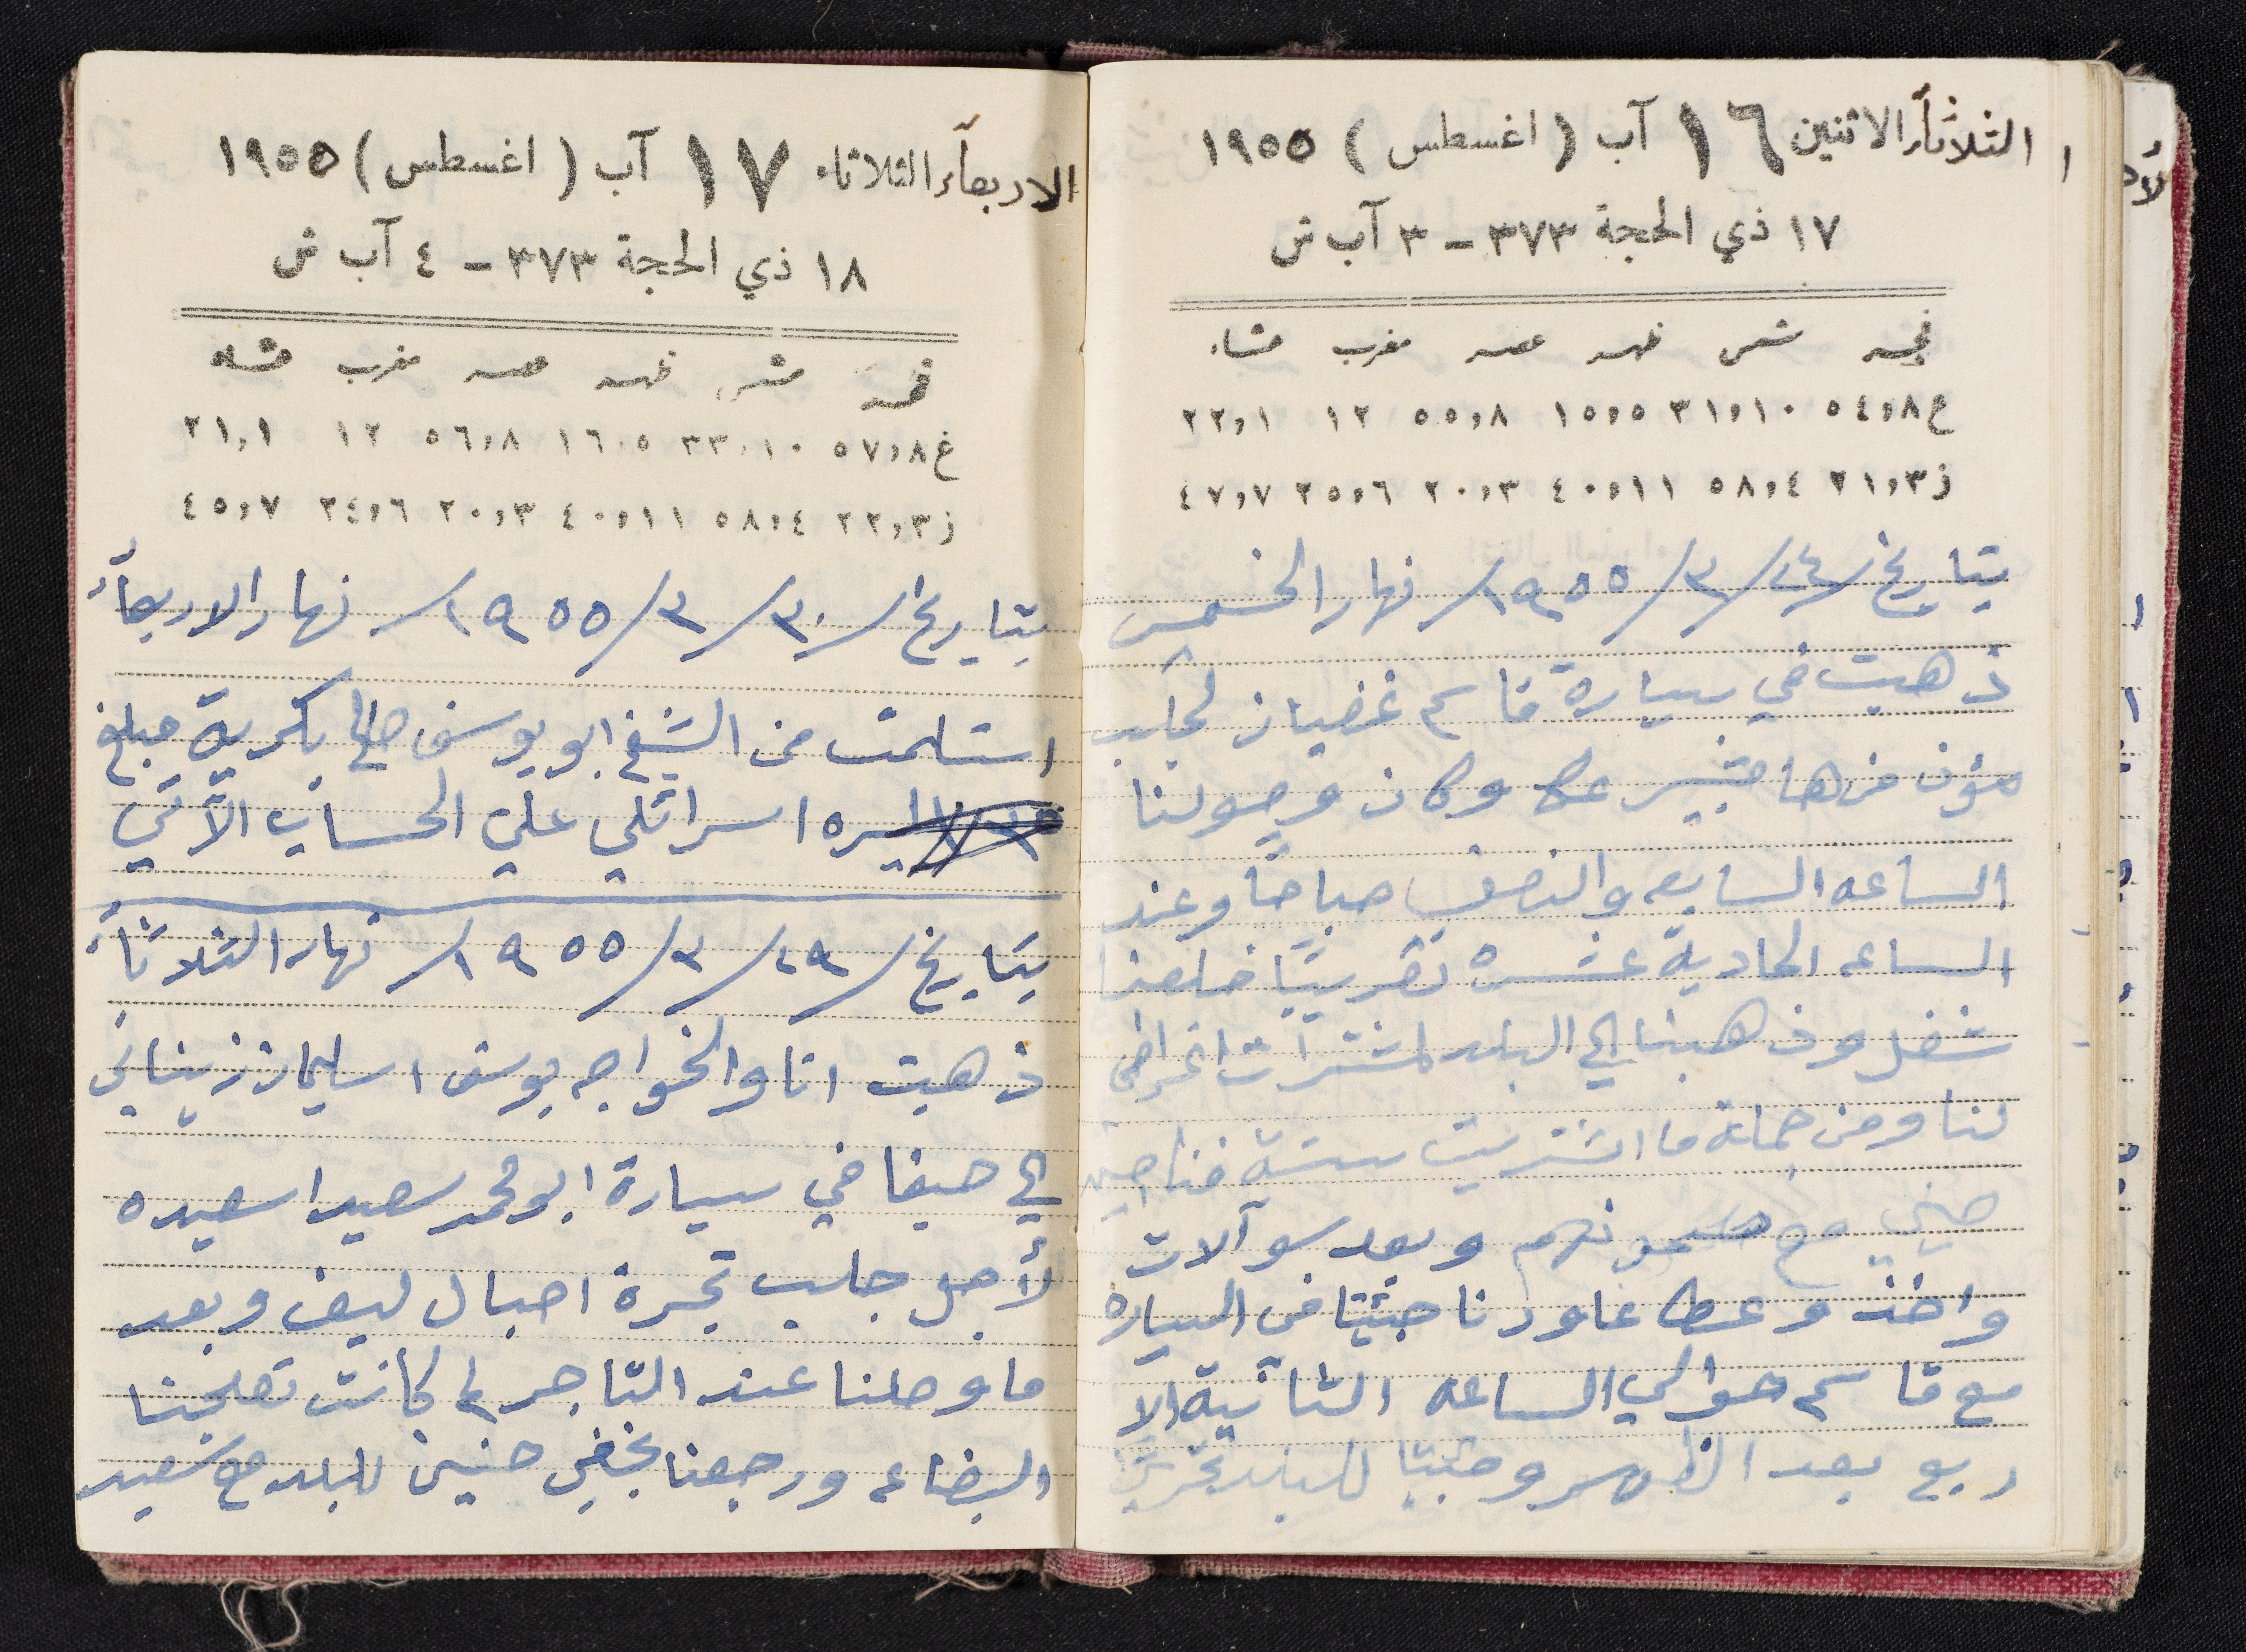 الثلاثآء الاثنين ١٦ آب ( اغسطس ) ١٩٥٥
١٧ ذي الحجة ٣٧٣ - ٣ آب ش
فجر شمس ظهر عصر مغرب عشاء
غ ٥٤,٨ ٣١,١٠ ١٥,٥ ٥٥,٨ ١٢ ٢٢,١
ز ٢١,٣ ٥٨,٤ ٤٠,١١ ٢٠,٣ ٢٥,٦ ٤٧,٧
بتاريخ/٢٤/٣/١٩٥٥/ نهار الخميس
ذهبت في سيارة قاسم غضبان لجلب
مؤن من هامشبير عكا وكان وصولنا
الساعه السابعه والنصف صباحاً وعند
الساعه الحادية عشره تقريبًا خلصنا
شغل وذهبنا الي البلد لمشترآت اغراض
لنا ومن جملة ما اشتريت ستة فناجين
صيني مع صحونهم وبعد سوآلات
واخذ وعطا عاودنا جئينا في السياره
مع قاسم حوالي الساعه الثانية الا
ربع بعد الظهر وجئنا للبلد تقريبًا
الاربعآء الثلاثاء ١٧ آب ( اغسطس ) ١٩٥٥
١٨ ذي الحجة ٣٧٣ - ٤ آب ش
فجر شمس ظهر عصر مغرب عشاء
غ ٥٧,٨ ٣٣,١٠ ١٦,٥ ٥٦,٨ ١٢ ٢١,١
ز ٢٢,٣ ٥٨,٤ ٤٠,١١ ٢٠,٣ ٢٤,٦ ٤٥,٧
بتاريخ/٣٠/٣/١٩٥٥/ نهار الاربعآء
استلمت من الشيخ ابو يوسف صالح بكرية مبلغ
ليره اسرائلي علي الحساب الآتي
بتاريخ/٢٩/٣/١٩٥٥/ نهار الثلاثآء
ذهبت انا والخواجه يوسف اسليمان زيناتي
الي حيفا في سيارة ابو محمد سعيد اسعيده
لأجل جلب تجرة احبال ليف وبعد
ما وصلنا عند التاجر لم كانت تصلحنا
البضاعه ورجعنا بخفي حنين للبلد مع سعيد